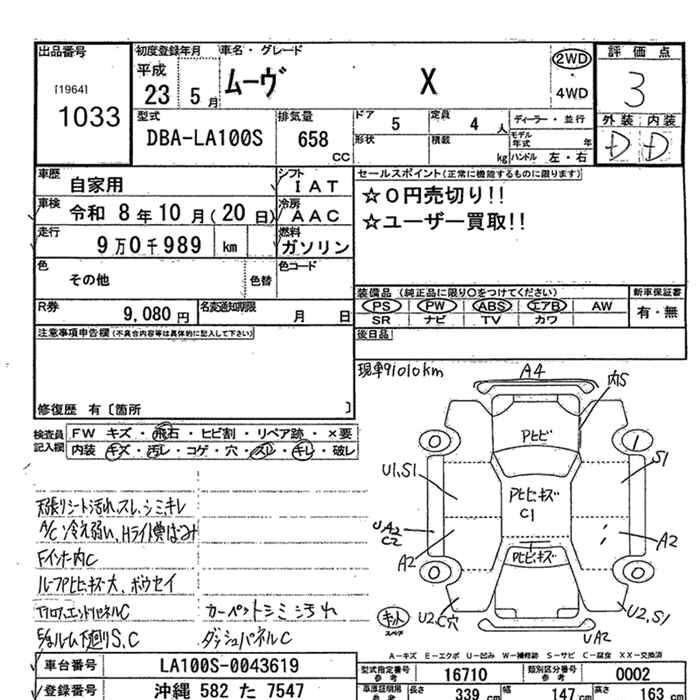 出品番号
[1964]
1033
初度登録年月
平成
23 5月
車名・グレード
ムーヴ X
2WD
4WD
評価点
3
外装 内装
D D
型式
DBA-LA100S
排気量
658
CC
ドア
5
定員
4 人
ディーラー・並行
形状
積載
kg
モデル年式 年
ハンドル 左・右
車歴
自家用
シフト
I A T
車検
令和 8年10月(20日)
冷房
A A C
走行
9万0千989 km
燃料
ガソリン
色
その他
色替
色コード
R券
9,080円
名変通知期限
月 日
セールスポイント(正常に機能するものに限ります)
☆0円売切り!!
☆ユーザー買取!!
装備品 (純正品に限り○をつけてください)
新車保証書
PS PW ABS エアB AW
SR ナビ TV カワ
有・無
後日品
注意事項申告欄(不具合内容等は具体的に記入して下さい)
修復歴 有〔箇所 〕
現車91010km
検査員記入欄
FW キズ・飛石・ヒビ割・リペア跡・×要
内装 キズ・汚レ・コゲ・穴・スレ・キレ・破レ
天張りシート汚れ、スレ、シミキレ
A/C冷え弱い、Hライト黄ばみ
Fインナー内C
ルーフPヒビキズ大、ボウセイ
フロア、エンドパネルC
カーペットシミ汚れ
下廻りS、C
ダッシュパネルC
A4
内S
Pヒビ
S1
U1,S1
Pヒビキズ
C1
UA2
C2
A2
A2
Pヒビキズ
キット
スペア
U2,C穴
U2,S1
UA2
A−キズ E−エクボ U−凹み W−補修跡 S−サビ C−腐食 XX−交換済
車台番号
LA100S-0043619
登録番号
沖縄 582 た 7547
型式指定番号
参考
16710
類別区分番号
参考
0002
長さ
339 cm
幅
147 cm
高さ
163 cm